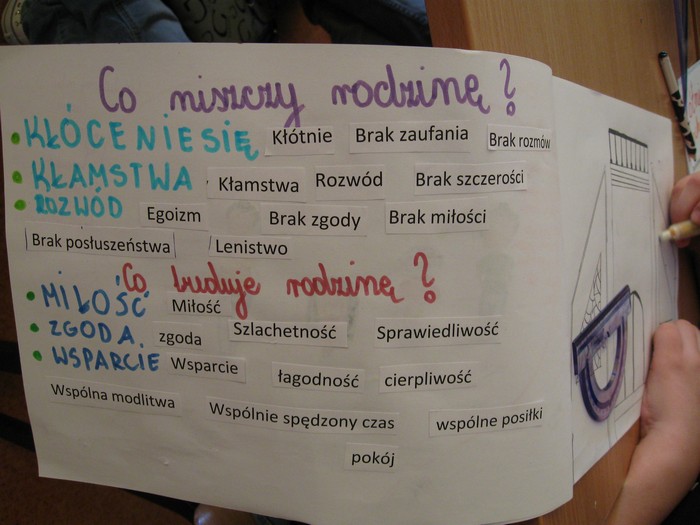 Co niszczy rodzinę?
• KŁÓCENIE SIĘ Kłótnie Brak zaufania Brak rozmów
• KŁAMSTWA Kłamstwa Rozwód Brak szczerości
• ROZWÓD Egoizm Brak zgody Brak miłości
Brak posłuszeństwa Lenistwo
Co buduje rodzinę?
• MIŁOŚĆ Miłość
• ZGODA. zgoda Szlachetność Sprawiedliwość
• WSPARCIE Wsparcie łagodność cierpliwość
Wspólna modlitwa Wspólnie spędzony czas wspólne posiłki
pokój